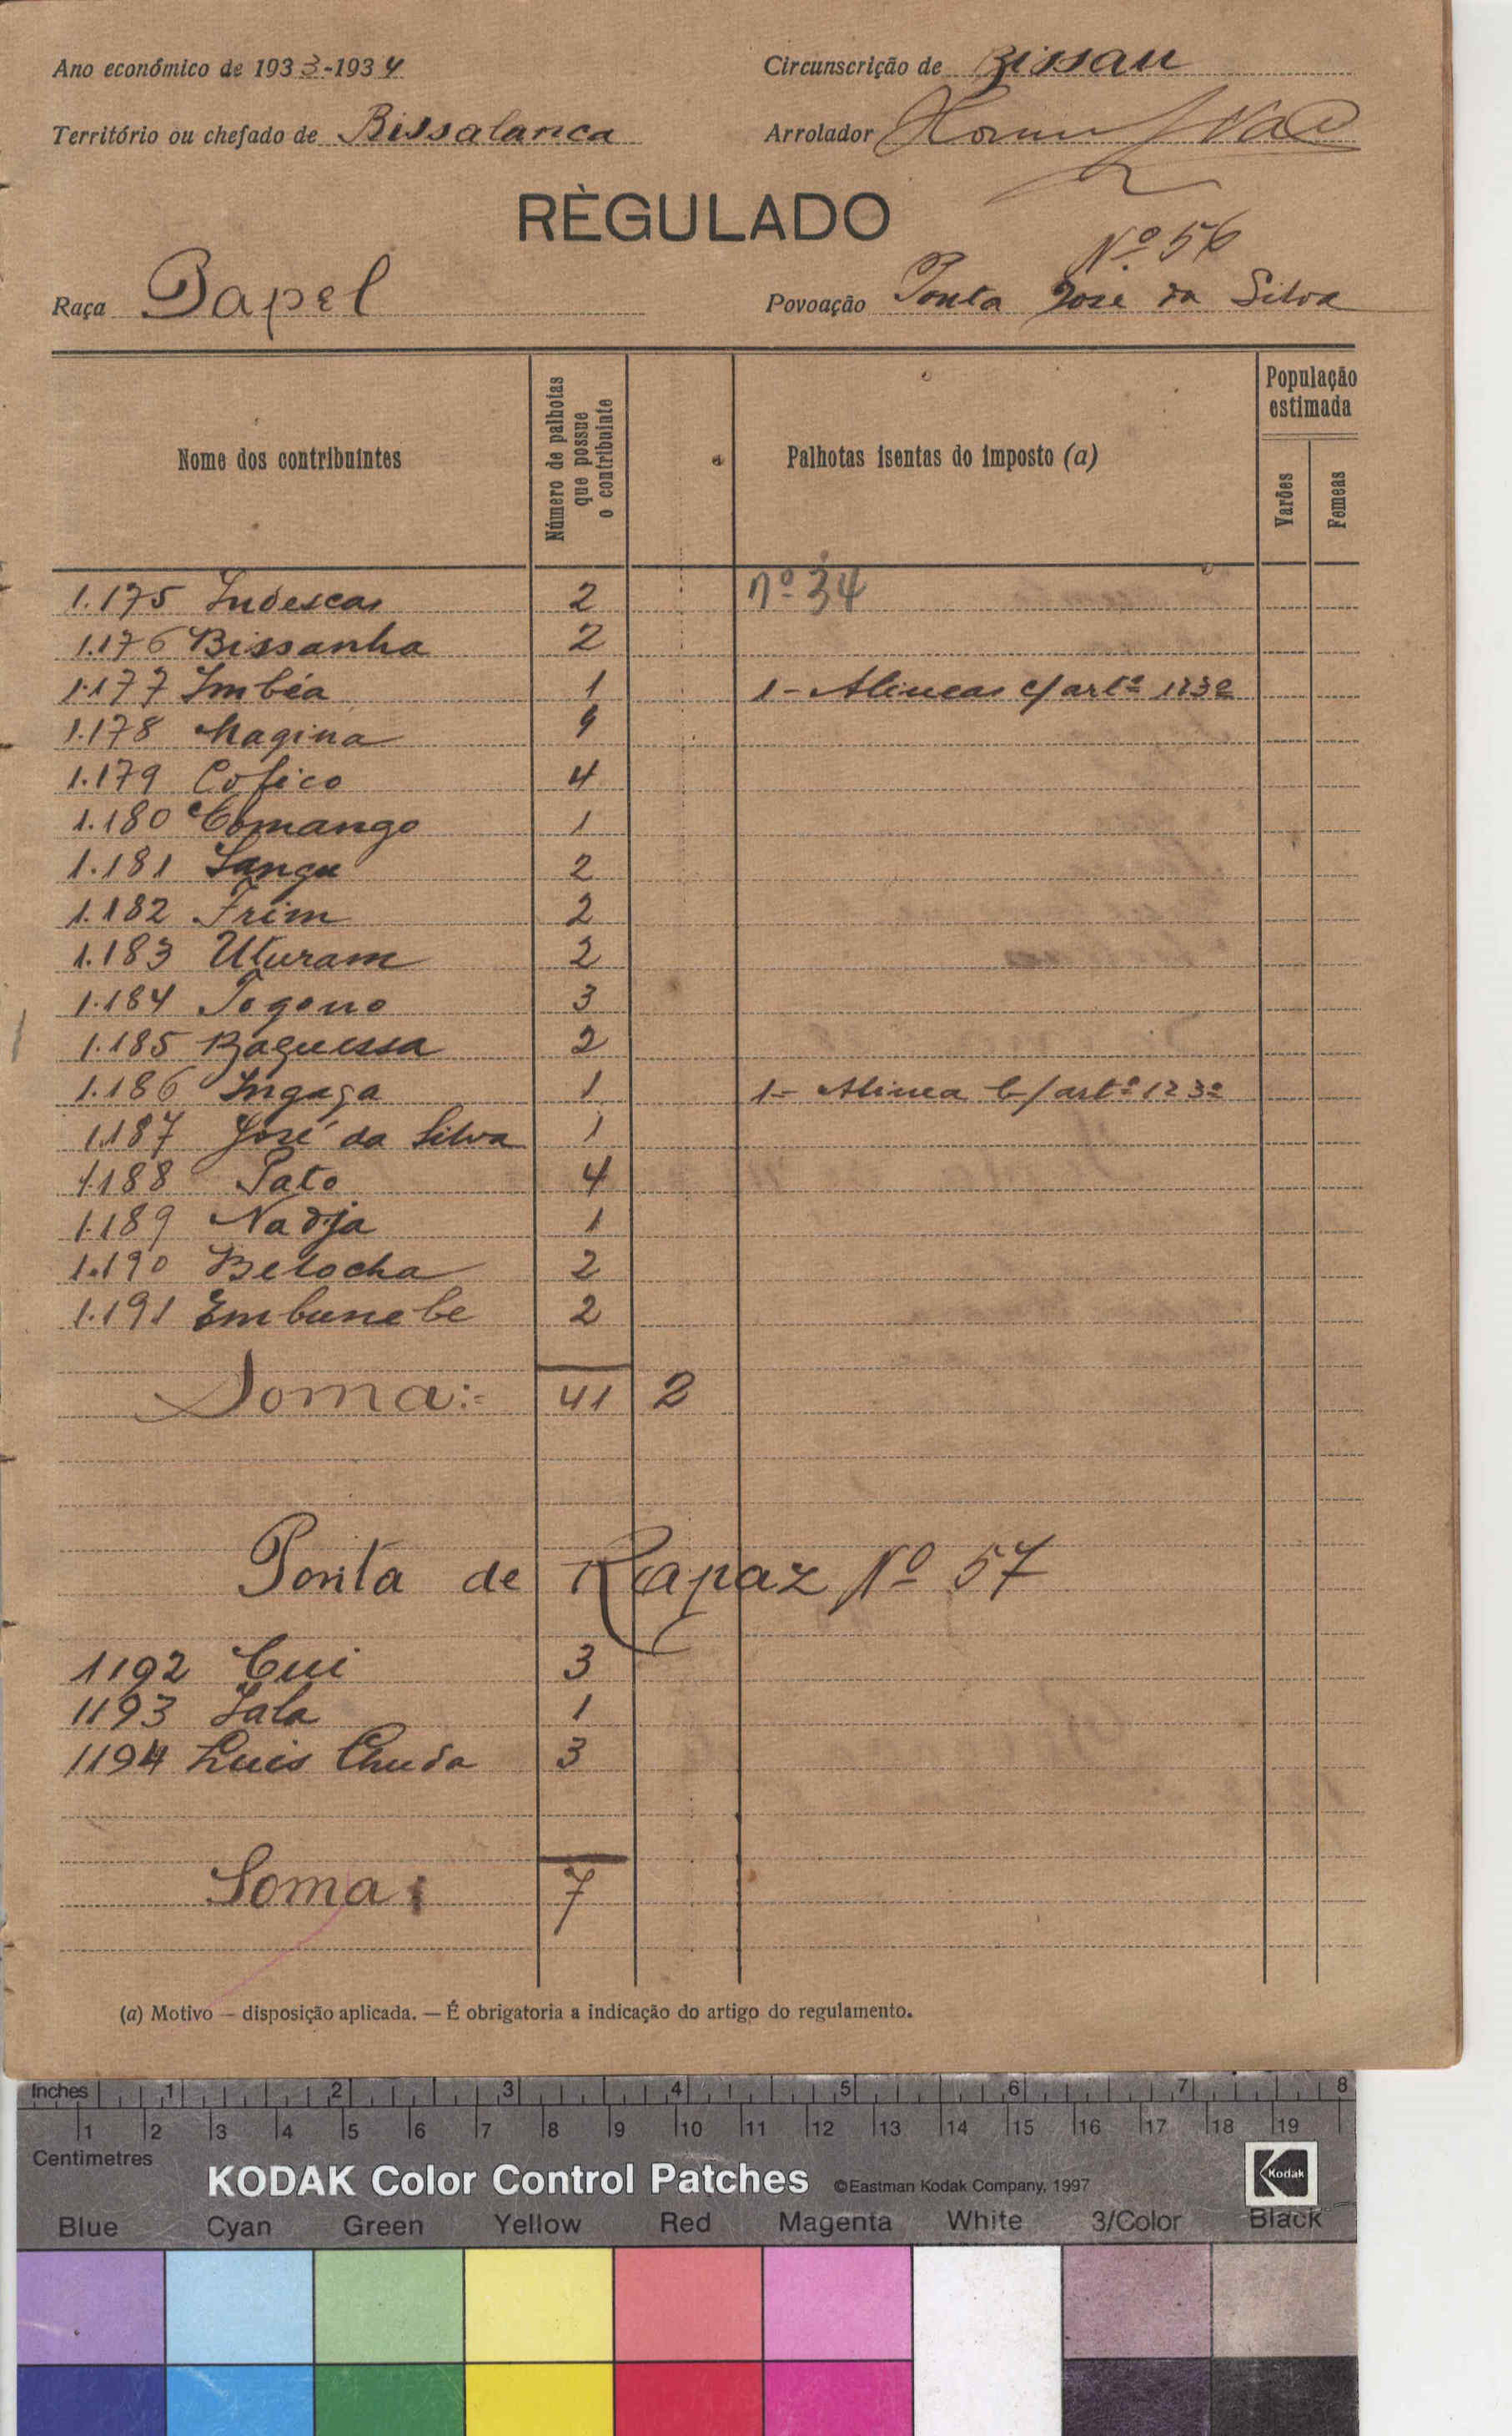 Ano económico de 1933-1934
Circunscrição de Bissau
Território ou chefado de Bissalanca
Arrolador
RÈGULADO
Nº 56
Raça Papel
Povoação Ponta José da Silva
Nome dos contribuintes
Número de palhotas que possue o contribuinte
Palhotas isentas do imposto (a)
População estimada
Varões
Femeas
1.175 Indescas 2 nº 34
1.176 Bissanha 2
1.177 Imbéa 1 1- Alineas c/ artº 123º
1.178 Magina 9
1.179 Cofico 4
1.180 Comango 1
1.181 Sangu 2
1.182 Frim 2
1.183 Uturam 2
1.184 Togono 3
1.185 Baguessa 2
1.186 Ingaga 1 1- Alinea b/ artº 123º
1.187 José da Silva 1
1188 Pato 4
1.189 Nadja 1
1.190 Belocha 2
1.191 Embunebe 2
Soma:- 41 2
Ponta de Rapaz Nº 57
1192 Cui 3
1193 Sala 1
1194 Luis Chuda 3
Soma: 7
(a) Motivo — disposição aplicada. — É obrigatoria a indicação do artigo do regulamento.
Inches 1 2 3 4 5 6 7 8
1 2 3 4 5 6 7 8 9 10 11 12 13 14 15 16 17 18 19
Centimetres
KODAK Color Control Patches ©Eastman Kodak Company, 1997 Kodak
Blue Cyan Green Yellow Red Magenta White 3/Color Black